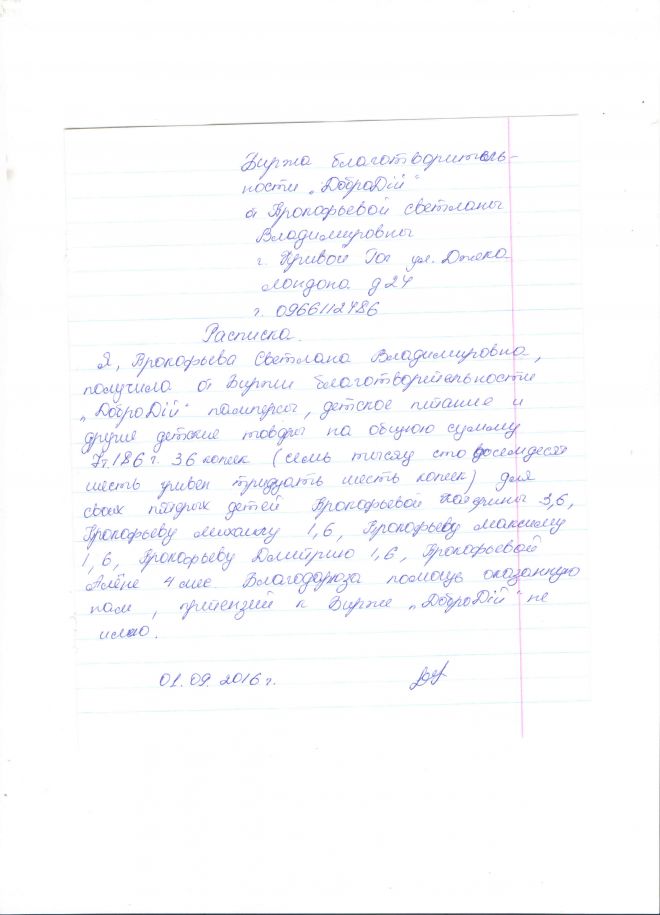 Биржа благотворитель-
ности „ДоброДій"
от Прокофьевой Светланы
Владимировны
г. Кривой Рог ул. Джека
Лондона д 24
т. 0966112486
Расписка.
Я, Прокофьева Светлана Владимировна,
получила от Биржи благотворительности
„ДоброДій" памперсы, детское питание и
другие детские товары на общую сумму
7т.186 г. 36 копеек (семь тысяч сто восемдесят
шесть гривен тридцать шесть копеек) для
своих пятерых детей Прокофьевой 3,6,
Прокофьеву Михаилу 1,6, Прокофьеву Максиму
1,6, Прокофьеву Дмитрию 1,6, Прокофьевой
Алёне 4 мес. Благодарю за помощь оказанную
нам, притензий к Бирже „ДоброДій" не
имею.
01.09.2016 г.